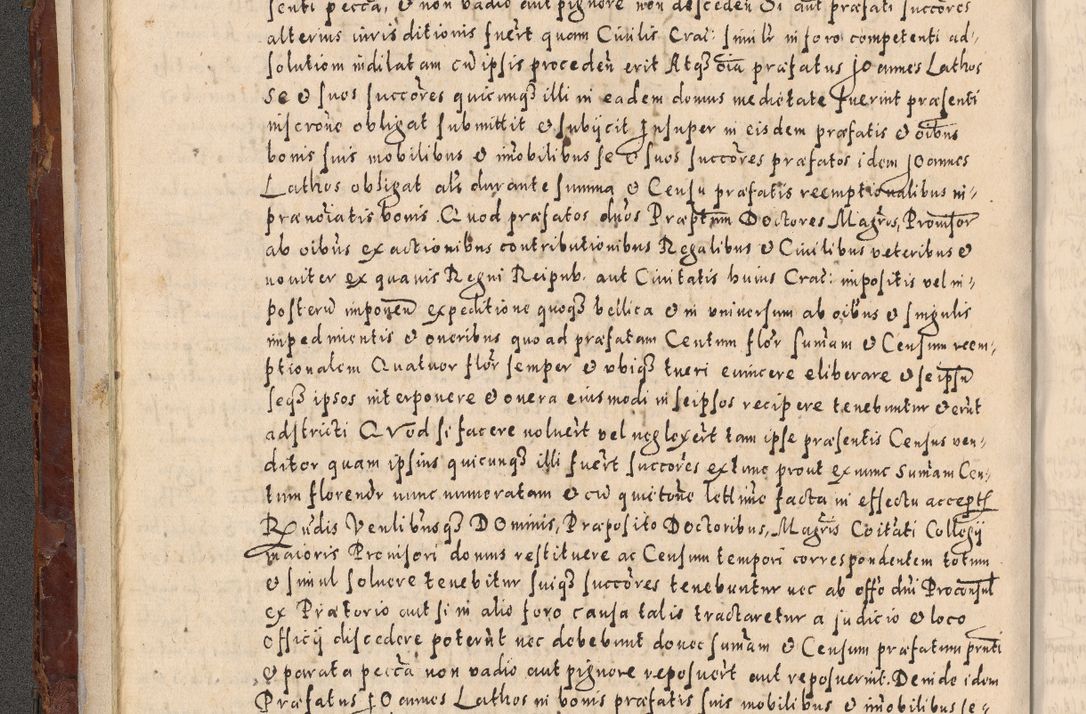 senti pecca, & non vadio aut pignore non desceden Si aut præfati succores
alterius iurisditionis fuerit quam Ciuilis Crac: simili in foro competenti ad-
solutiom indilatam cu ipsis proceden erit Atqz oia præfatus Joannes Lathos
se & suos succores quicunqz illi in eadem domus medietate fuerint præsenti
inscrone obligat submittit & subijcit Insuper in eisdem præfatis & oibus
bonis suis mobilibus & imobilibus se & suos succores præfatos idem Joannes
Lathos obligat als durante summa & Censu præfatis reemptionalibus in-
prænoiatis bonis. Quod præfatos duos Præptum Doctores Magros, Prouisor
ab oibus exactionibus contributionibus Regalibus & Ciuilibus veteribus &
nouiter ex quauis Regni Reipub. aut Ciuitatis huius Crac: impositis vel in-
posteru imponen expeditione quoqz bellica & in vniuersum ab oibus & singulis
impedimentis & oneribus quoad præfatam Centum flor sumam & Censum reem-
ptionalem Quatuor flor semper & vbiqz tueri euincere eliberare & seipsu
seqz ipsos interponere & onera eiusmodi in seipsos recipere tenebuntur & erut
adstricti Quod si facere noluerit vel neglexerit tam ipse præsentis Census ven-
ditor quam ipsius quicunqz illi fuert succores extunc prout ex nunc Sumam Cen-
tum florenor nunc numeratam & cu quietone letlime facta in effectu accept
Rndis Venlibusqz Dominis, Præposito Doctoribus, Magris Coitati Collegij
maioris Prouisori domus restituere ac Censum tempori correspondentem totum
& simul soluere tenebitur suiqz succores tenebuntur nec ab offo dni Proconsul
ex Prætorio aut si in alio foro causa talis tractaretur a judicio & loco
Officij discedere poterut nec debebunt donec sumam & Censum præfatum pnti
& parata pecca non vadio aut pignore reposuert aut reposuerint. Deinde idem
Præfatus Joannes Lathos in bonis præfatis suis mobilibus & imobilibus se-